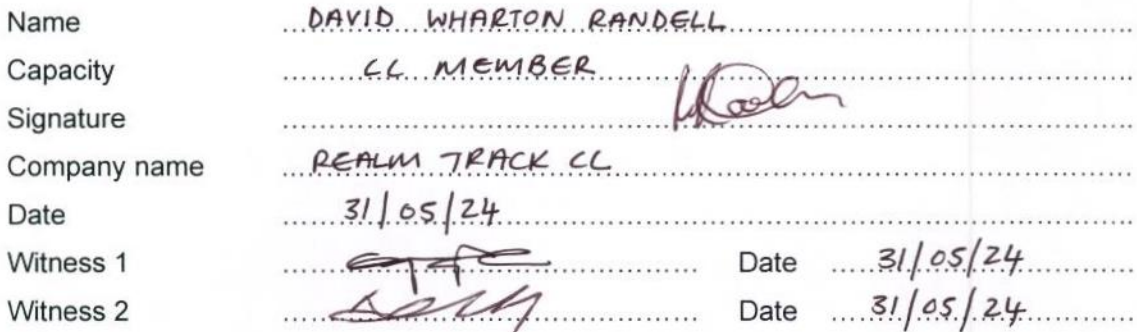 Name DAVID WHARTON RANDELL
Capacity CC MEMBER
Signature
Company name REALM TRACK CC
Date 31/05/24
Witness 1 Date 31/05/24
Witness 2 Date 31/05/24